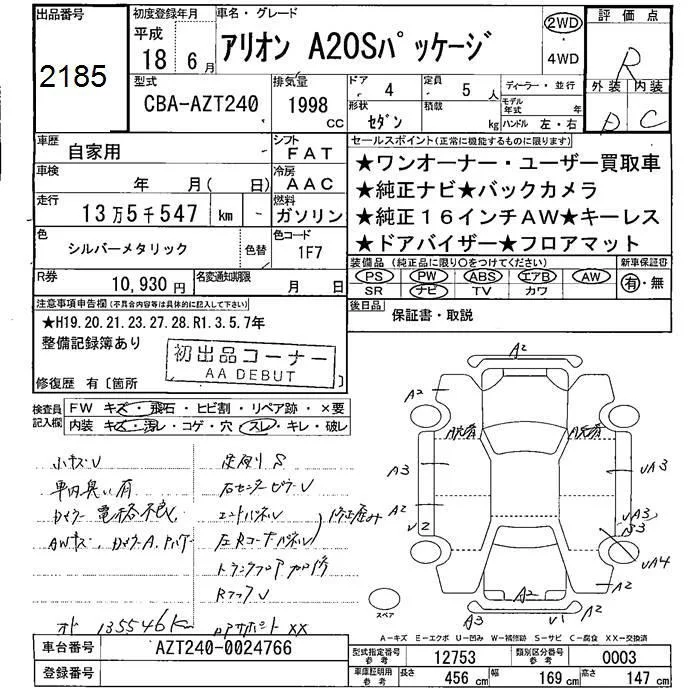 出品番号
2185
初度登録年月
平成
18 6月
車名・グレード
アリオン A20Sパッケージ
2WD
4WD
評価点
R
外装 内装
D C
型式
CBA-AZT240
排気量
1998 CC
ドア
4
定員
5 人
形状
セダン
積載
kg
ディーラー・並行
モデル年式 年
ハンドル 左・右
車歴
自家用
シフト
FAT
車検
年 月( 日)
冷房
AAC
走行
13万5千547 km -
燃料
ガソリン
色
シルバーメタリック
色替
色コード
1F7
R券
10,930円
名変通知期限
月 日
セールスポイント(正常に機能するものに限ります)
★ワンオーナー・ユーザー買取車
★純正ナビ★バックカメラ
★純正16インチAW★キーレス
★ドアバイザー★フロアマット
装備品 (純正品に限り○をつけてください)
PS PW ABS エアB AW
SR ナビ TV カワ
新車保証書
有・無
後日品
保証書・取説
注意事項申告欄(不具合内容等は具体的に記入して下さい)
★H19.20.21.23.27.28.R1.3.5.7年
整備記録簿あり
初出品コーナー
AA DEBUT
修復歴 有〔箇所
検査員記入欄
FW キズ・飛石・ヒビ割・リペア跡・×要
内装 キズ・汚レ・コゲ・穴・スレ・キレ・破レ
小キズU
車内臭い有
カメラー電格不良
AWキズ
下廻りS
右センターピラーU
エンドパネル
左Rコーナーパネル
トランクフロア
修正歪み
RフロアU
オド 135546Km
XX
A2
A2
A3
A2
U2
UA3
UA3
S3
UA4
A2
A2
A2
A3
U1
スペア
A-キズ E-エクボ U-凹み W-補修跡 S-サビ C-腐食 XX-交換済
車台番号
AZT240-0024766
登録番号
型式指定番号 参考
12753
類別区分番号 参考
0003
車庫証明用 参考
長さ 456 cm
幅 169 cm
高さ 147 cm